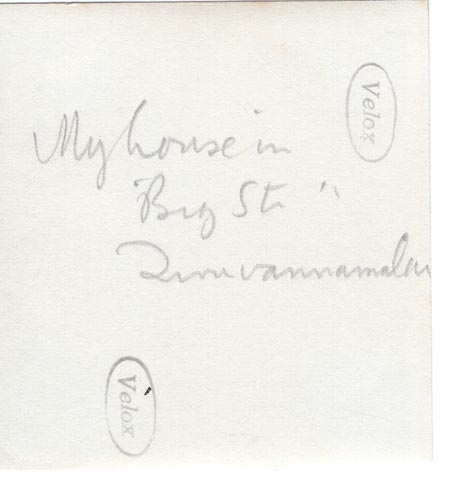 Velox
My house in
"Big St"
Tiruvannamalai
Velox